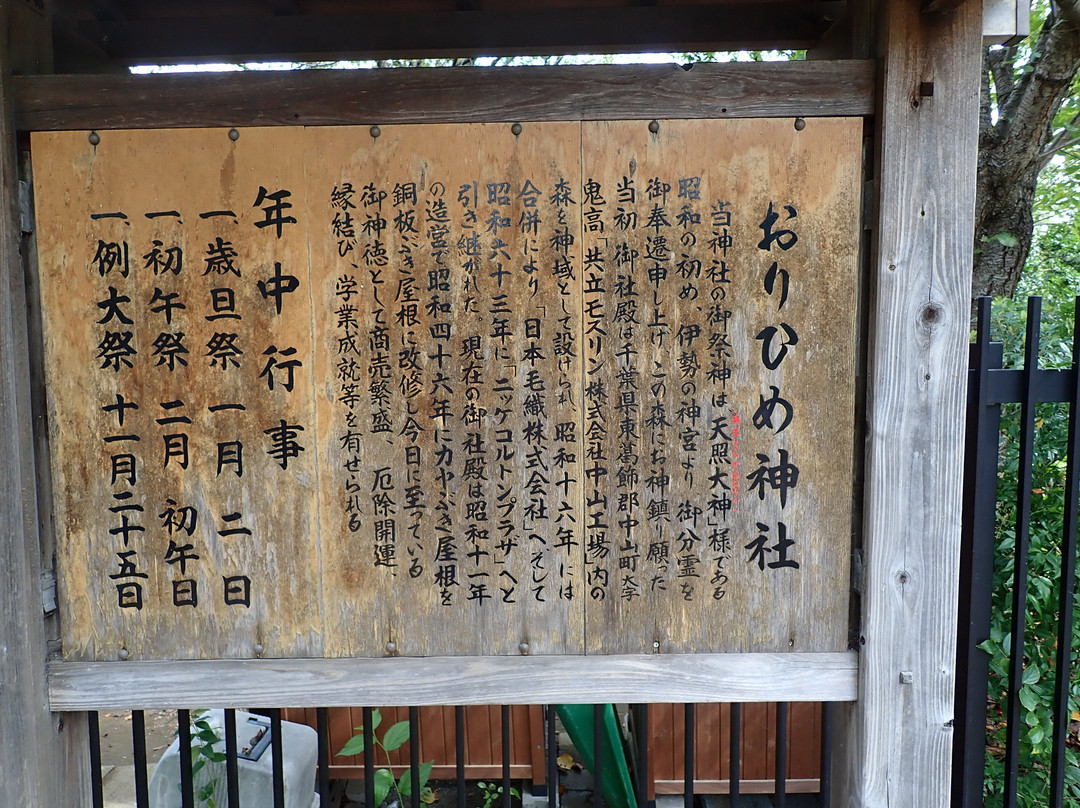 おりひめ神社
当神社の御祭神は「天照大神」様である
昭和の初め、伊勢の神宮より御分霊を
御奉遷申し上げ、この森にお神鎮り願った
当初御社殿は千葉県東葛飾郡中山町大字
鬼高「共立モスリン株式会社中山工場」内の
森を神域として設けられ、昭和十六年には
合併により「日本毛織株式会社」へそして
昭和六十三年に「ニッケコルトンプラザ」へと
引き継がれた 現在の御社殿は昭和十一年
の造営で昭和四十六年にカヤぶき屋根を
銅板ぶき屋根に改修し今日に至っている
御神徳として商売繁盛、厄除開運、
縁結び、学業成就等を有せられる
年中行事
一、歳旦祭 一月 二日
一、初午祭 二月 初午日
一、例大祭 十一月二十五日